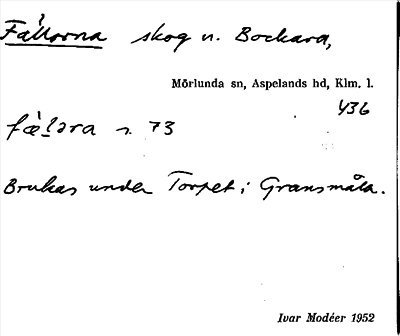 Fällorna skog n. Bockara,
Mörlunda sn, Aspelands hd, Klm. l.
436
n. 73
Brukas under Torpet i Gransmåla.
Ivar Modéer 1952